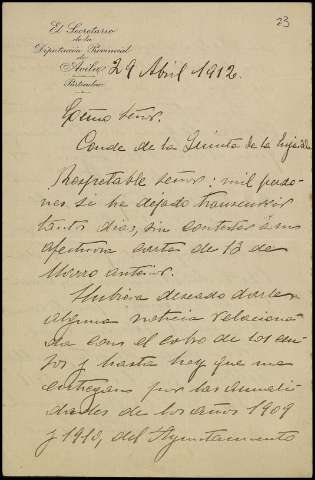 23
El Secretario
de la
Diputación Provincial
de
Avila
Particular
29 Abril 1912.
Excmo Señor.
Conde de la Quinta de la Enjarada
Respetable Señor: mil perdo
nes si he dejado transcurrir
tantos dias, sin contestar á su
afectuosa carta de 13 de
Marzo anterior.
Hubiera deseado darle
alguna noticia relaciona
da con el cobro de los
y hasta hoy que me
entregan por las anuali
dades de los años 1909
y 1910, del Ayuntamiento